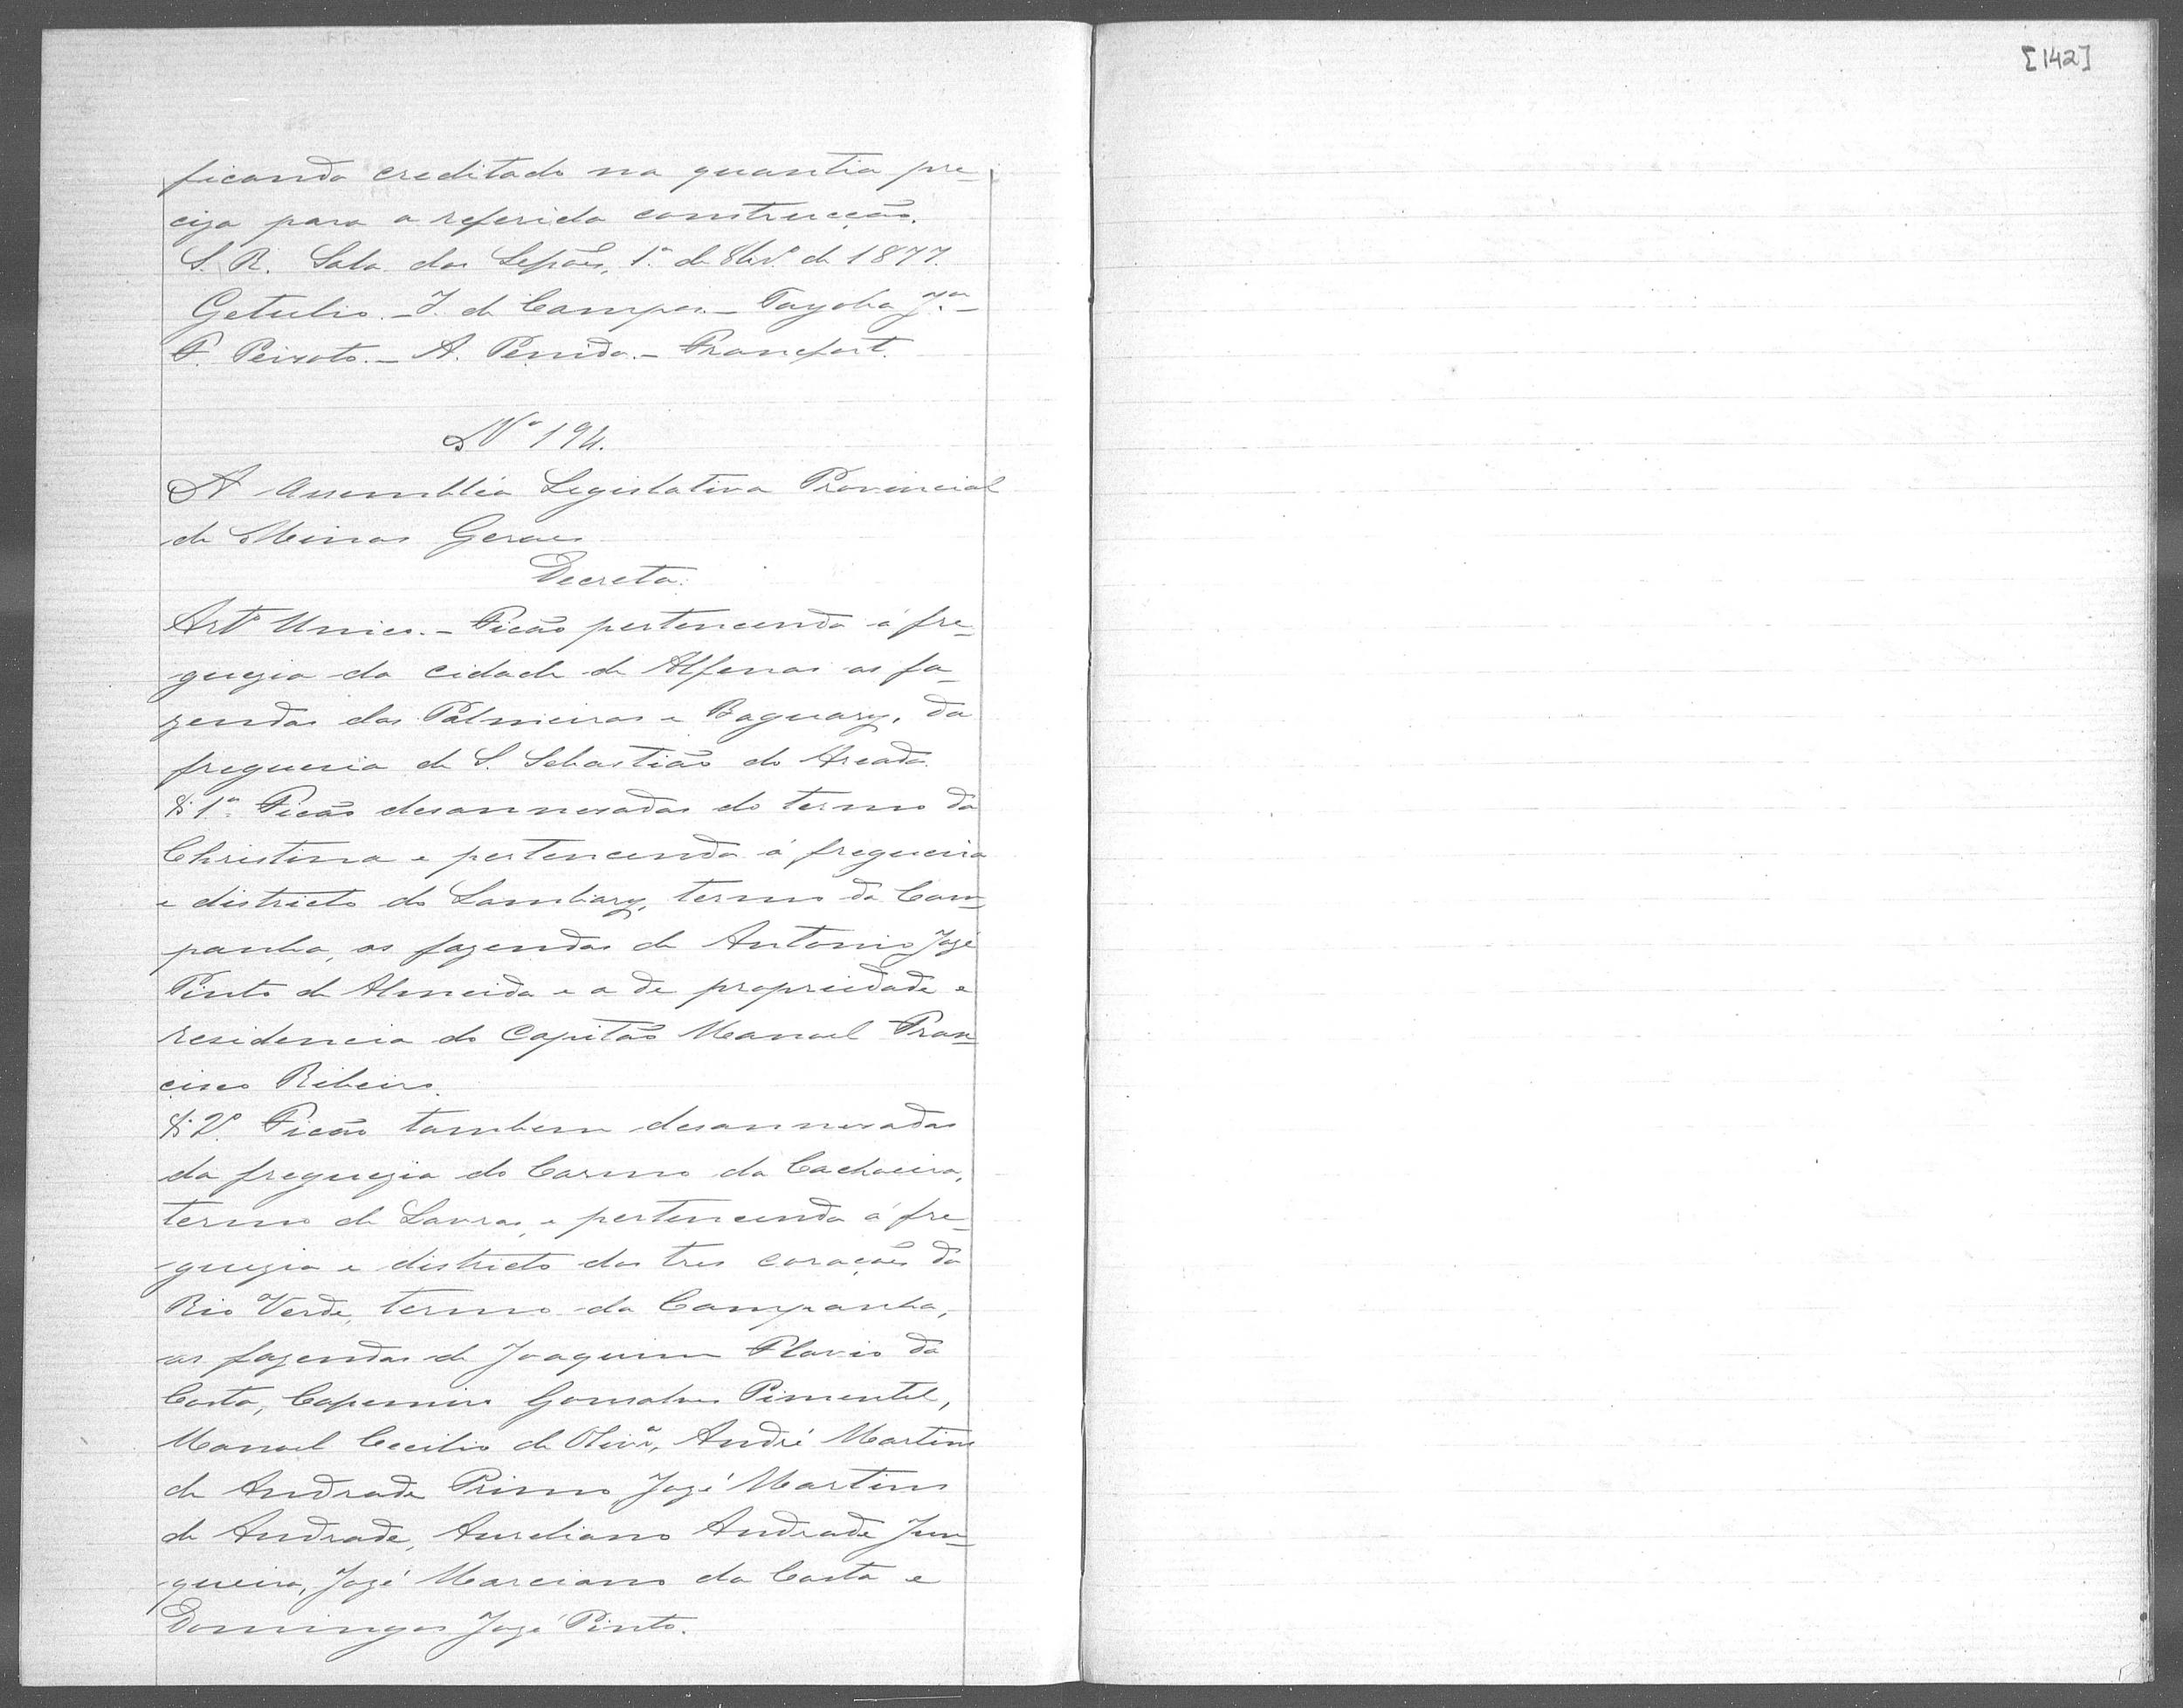 [142]
ficando creditado na quantia pre-
ciza para a referida construcção.
S. R. Sala das Sessões, 1º de 8br.º de 1877.
Getulio. - J. de Campos. - Tayoba Jor. -
F. Peixoto. - A. Penido. - Francfort.
Nº 194.
A Assembléa Legislativa Provincial
de Minas Geraes
Decreta:
Artº Unico. - Ficão pertencendo á fre-
guezia da cidade de Alfenas as fa-
zendas das Palmeiras e Baguary, da
freguesia de S. Sebastião do Areado.
§ 1º Ficão desannexadas do termo da
Christina e pertencendo á freguesia
e districto do Lambary, termo da Cam-
panha, as fazendas de Antonio José
Pinto de Almeida e a de propriedade e
residencia do Capitão Manoel Fran-
cisco Ribeiro.
§ 2º Ficão tambem desannexadas
da freguezia do Carmo da Cachoeira,
termo de Lavras, e pertencendo á fre-
guezia e districto dos tres corações do
Rio Verde, termo da Campanha,
as fazendas de Joaquim Flavio da
Costa, Gonsalves Pimentel,
Manoel Cecilio de Olivrª, André Martins
de Andrade Primo, José Martins
de Andrade, Aureliano Andrade Jun-
queira, José Marciano da Costa e
Domingos José Pinto.